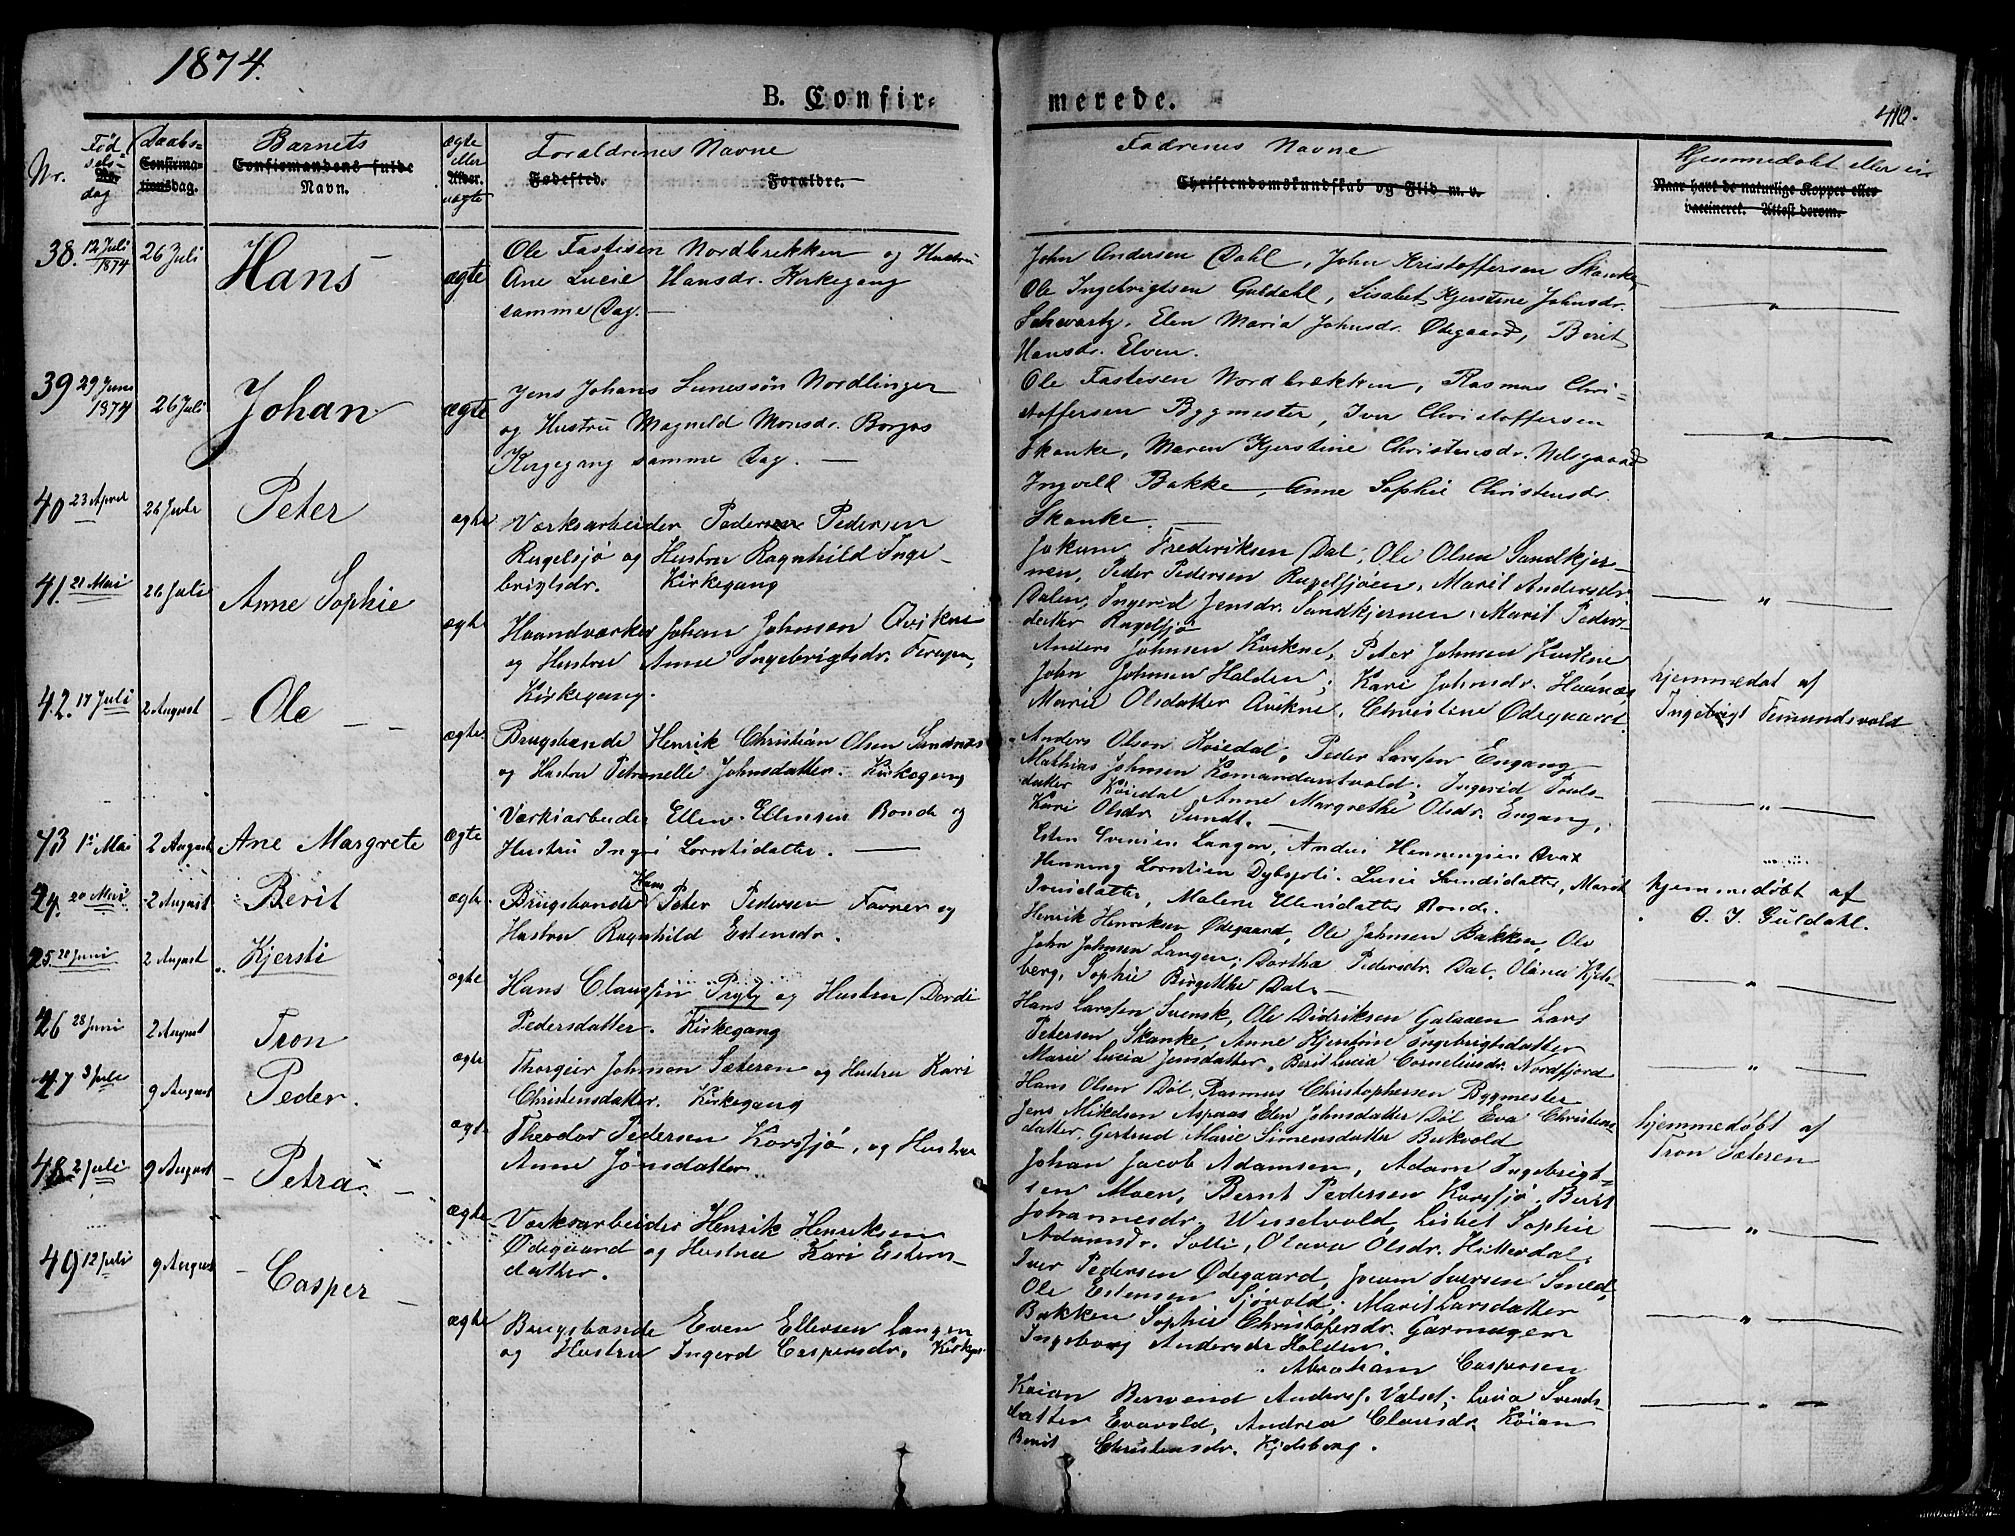 1874.
B. Confir-
merede.
410.
Nr.
Fød-
sels-
dag
Daabs-
Confirma-
tionsdag.
Barnets
Confirmandens fulde
Navn.
ægte
eller
Alder.
uægte
Forældrenes Navne
Fødested.
Forældre.
Fadrenes Navne
Christendomskundskab og Flid m. v.
Hjemmedøbt eller ei
Naar havt de naturlige Kopper eller
vaccineret. Attest derom.
38. 12 Juli 1874
26 Juli
Hans
ægte
Ole Fastesen Nordbrekken og Hustru
Ane Lucie Hansdr. Kirkegang
samme Dag.
John Andersen Dahl, John Kristoffersen Skanke,
Ole Ingebrigtsen Guldahl, Lisabet Kjerstine Johnsdr.
Schwartz, Elen Maria Johnsdr. Ødegaard, Berit
Hansdr. Elven.
39 29 Juni 1874
26 Juli
Johan
ægte
Jens Johans Sunessøn Nordlinger
og Hustru Magnild Monsdr. Borgos
Kirgegang samme Dag.
Ole Fastesen Nordbrækken, Rasmus Chri-
stoffersen Bygmester, Iver Christoffersen
Skanke, Maren Kjerstine Christensdr. Nelsgaard
Ingvold Bakke, Anne Sophie Christensdr.
Skanke.
40 23 April
26 Juli
Peter
ægte
Værksarbeider Pedersen Pedersen
Rugelsjø og Hustru Ragnhild Inge-
brigtsdr. Kirkegang
Jokum Frederiksen Dal, Ole Olsen Sandkjer-
nen, Peder Pedersen Rugelsjøen, Marit Andersdr
Dalen, Ingerid Jensdr. Sandkjernen, Marit Peders-
datter Rugelsjø
41. 21 Mai
26 Juli
Anne Sophie
ægte
Haandværker Johan Johnsen Qvikne
og Hustru Anne Ingebrigtsdr.
Kirkegang.
Anders Johnsen Kvikne, Peter Johnsen Kvikne
John Johnsen Holden, Kari Johnsdr.
Marie Olsdatter Qvikne, Christine Ødegaard.
hjemmedøbt af
Ingebrigt Femundsvold
42. 17 Juli
2 August
Ole
ægte
Brugsbonde Henrik Christian Olsen Sundnes
og Hustru Petronelle Johnsdatter. Kirkegang
Anders Olsen Køiedal, Peder Larsen Engang
Mathias Johnsen Komandantvold; Ingerid Pouls-
datter Køiedal, Anne Margrethe Olsdr. Engang,
Kari Olsdr. Sundt.
43 1ste Mai
2 August
Ane Margrete
ægte
Værksarbeider Ellen Ellensen Bonde og
Hustru Ingri Lorntsdatter.
Esten Svensen Langen, Anders Henningsen Qvax
Henning Lorntsen Dybsjoli. Lusie Svendsdatter, Marit
Iversdatter, Malene Ellensdatter Bonde.
24. 20 Mai
2 August
Berit
ægte
Brugsbonde Hans Peter Pedersen Favner og
Hustru Ragnhild Estensdr.
Henrik Henriksen Ødegaard, Ole Johnsen Bakken, Ole
John Johnsen Langen, Dorthe Pedersdr. Dal. Olina Kjels-
berg, Sophie Birgitthe Dal.
hjemmedøbt af
O. J. Guldahl.
25. 20 Juni
2 August
Kjersti
ægte
Hans Clausen Prytz og Hustru Dordi
Pedersdatter. Kirkegang
Hans Larsen Svensk, Ole Didriksen Galaaen Lars
Petersen Skanke, Anne Kjerstine Ingebrigtsdatter
Marie Lucia Jensdatter, Berit Lucia Corneliusdr. Nordfjord
26 28 Juni
2 August
Tron
ægte
Thorgeir Johnson Sæteren og Hustru Kari
Christensdatter. Kirkegang
Hans Olsen Dal, Rasmus Christophersen Bygmester
Jens Mikelsen Aspaas Elen Johnsdatter Dal Eva Christens-
datter, Gertrud Marie Simensdatter Bukvold
47 3 Juli
9 August
Peder.
ægte
Theodor Pedersen Korssjø, og Hustru
Anne Jonsdatter
Johan Jacob Adamsen, Adam Ingebrigt-
sen Moen, Bernt Pedersen Korssjø, Berit
Johannesdr. Wisselvold, Lisbet Sophie
Adamsdr. Solli, Olava Olsdr. Hitterdal.
hjemmedøbt af
Tron Sæteren
48 2 Juli
9 August
Petra
ægte
Værksarbeider Henrik Henriksen
Ødegaard og Hustru Kari Estens-
datter.
Iver Pedersen Ødegaard, Jocum Iversen Smed,
Ole Estensen Sjøvold; Marit Larsdatter
Bakken Sophie Christofersdr. Garmagen
Ingeborg Andersdr Holden.
49 12 Juli
9 August
Casper
ægte
Brugsbonde Even Ellevsen Langen
og Hustru Ingerd Caspersdr.
Abraham Caspersen
Køian Berwend Anders. Valset; Lucia Svends-
datter Evavold, Andrea Clausdr. Køian
Berit Christensdr. Kjelsberg.